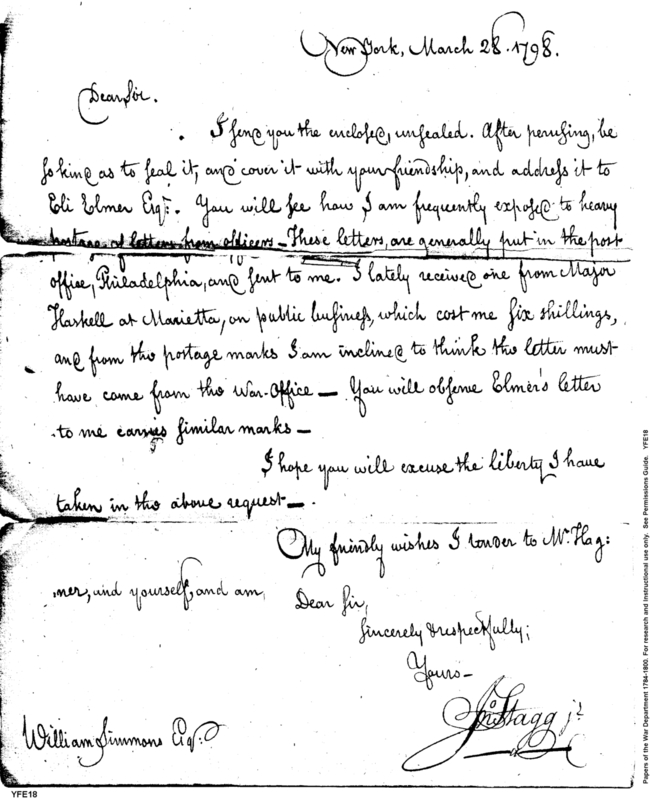 New York, March 28. 1798.
Dear Sir.
I send you the enclosed, unsealed. After perusing, be
so kind as to seal it, and cover it with your friendship, and address it to
Eli Elmer Esqr. You will see how I am frequently exposed to heavy
postage of letters from officers — These letters, are generally put in the post
office, Philadelphia, and sent to me. I lately received one from Major
Haskell at Marietta, on public business, which cost me six shillings,
and from the postage marks I am inclined to think the letter must
have come from the War-Office — You will observe Elmer's letter
to me carries similar marks —
I hope you will excuse the liberty I have
taken in the above request — .
My friendly wishes I tender to Mr. Hag:
ner, and yourself, and am,
Dear Sir,
sincerely & respectfully;
Yours —
Jno Stagg jr
William Simmons Esqr.
YFE18
Papers of the War Department 1784-1800. For research and instructional use only. See Permissions Guide. YFE18